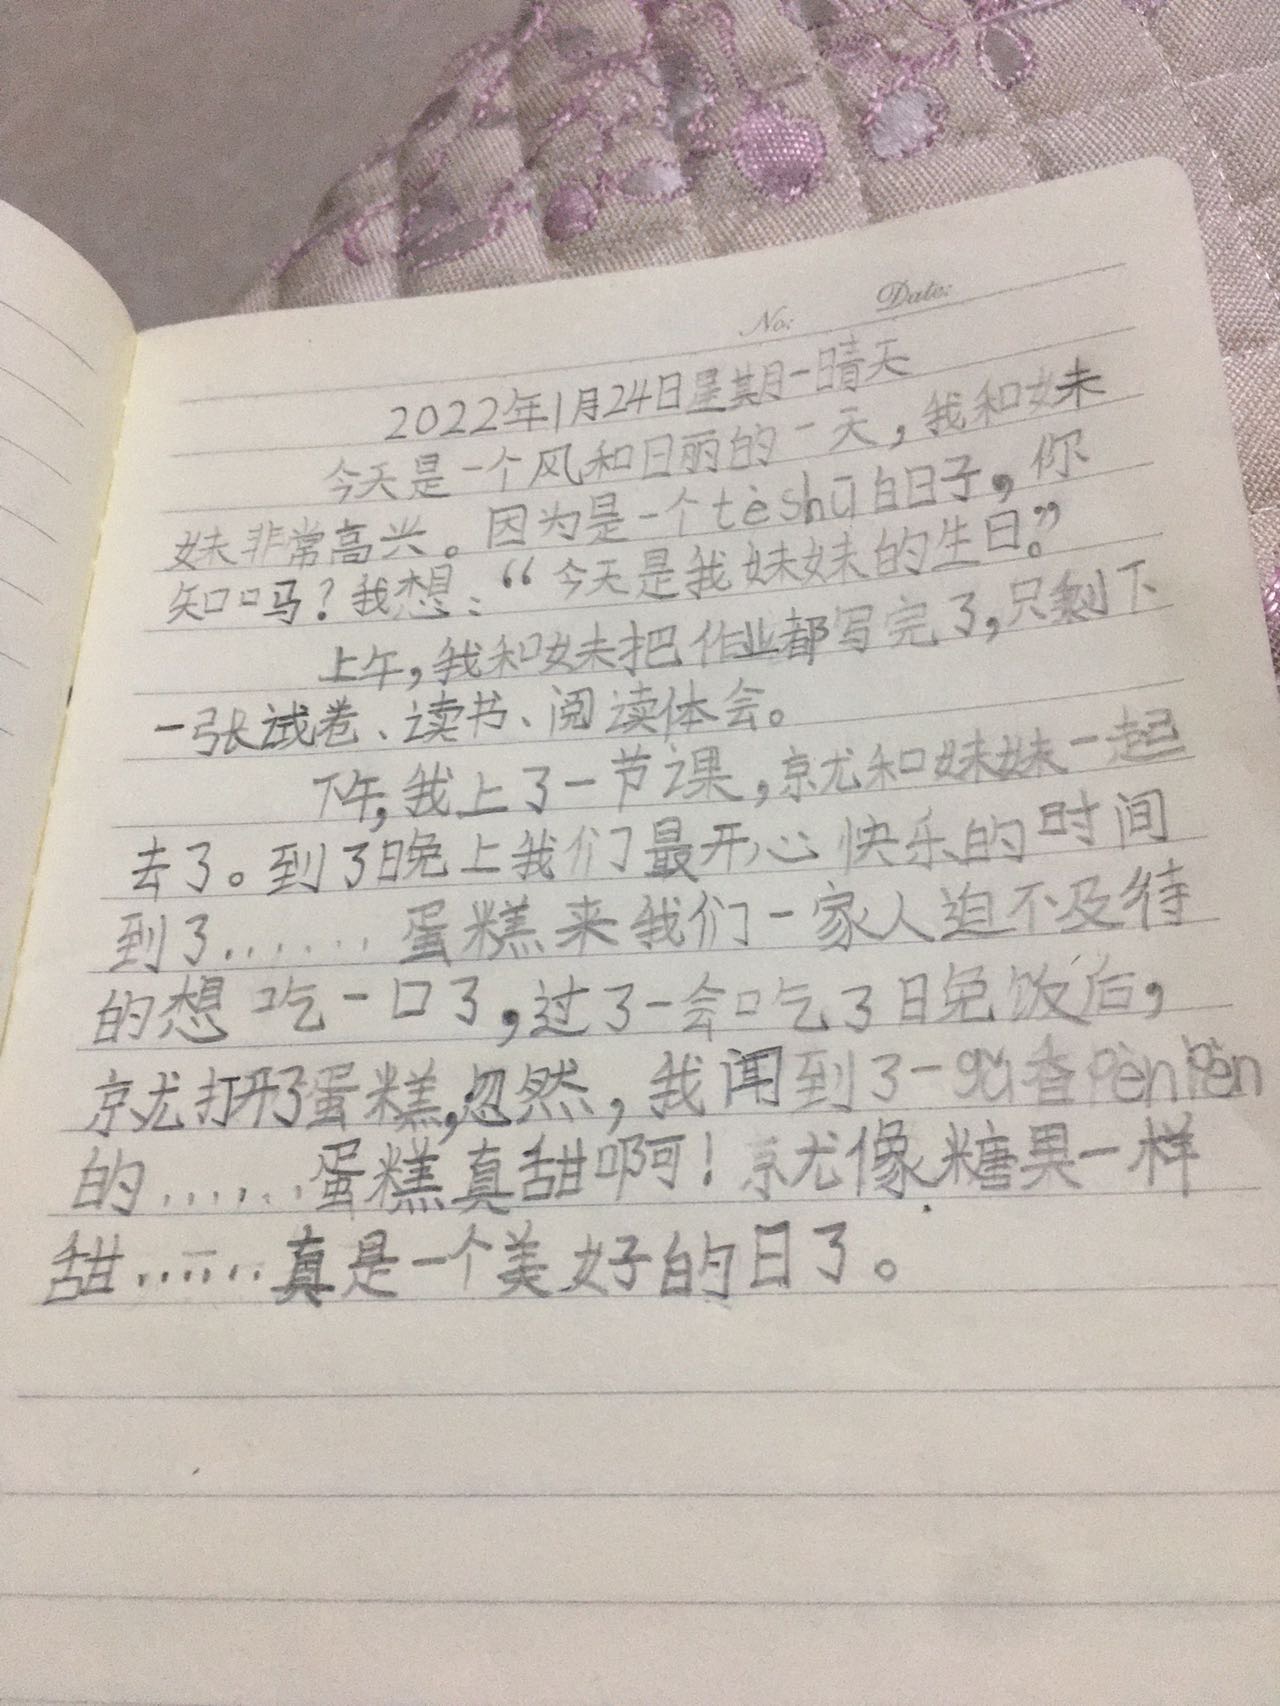 No: Date:
2022年1月24日星期一晴天
今天是一个风和日丽的一天，我和妹
妹非常高兴。因为是一个tèshū的日子，你
知口马？我想：“今天是我妹妹的生日。”
上午，我和妹把作业都写完了，只剩下
一张试卷、读书、阅读体会。
下午，我上了一节课，京尤和妹妹一起
去了。到了晚上我们最开心快乐的时间
到了……蛋糕来我们一家人迫不及待
的想吃一口了，过了一会吃了晚饭后，
京尤打开了蛋糕，忽然，我闻到了一gǔ香pènpèn
的……蛋糕真甜啊！京尤像糖果一样
甜……真是一个美好的日了。